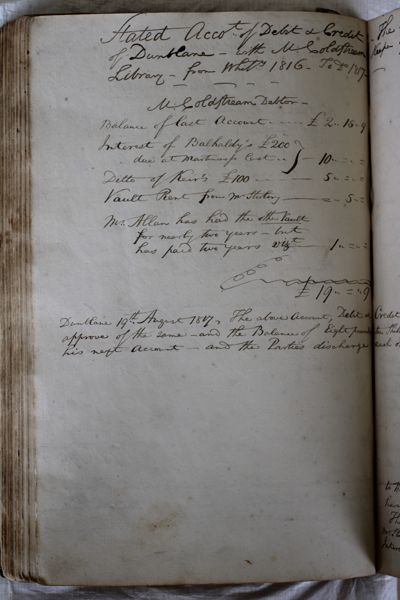 Stated Accot. of Debt & Credit
of Dunblane – with Mr Coldstream
Library – from Whits. 1816 – To Do. 1817
Mr Coldstream Debtor –
Balance of last Account £2 .. 16 .. 9
Interest of Balhaldy's £200
due at Martinmas last .. } 10 .. = .. =
Ditto of Keir's £100 – 5 .. = .. =
Vault Rent from Mr Stirling – = .. 5 .. =
Mr. Allan has had the other Vault
for nearly two years – but
has paid two years 1 .. = .. =
£19 .. = .. 9
Dunblane 19th August 1817, The above Account, Debt & Credit
approve of the same – and the Balance of Eight pounds
his next Account – and the Parties discharge each
The